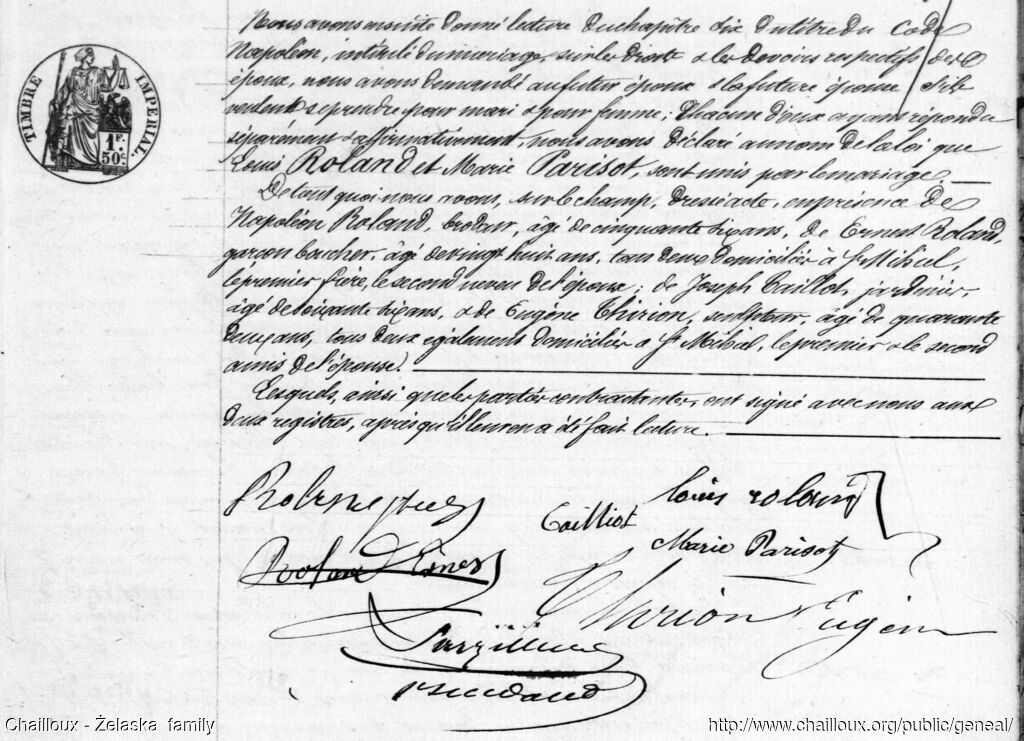 TIMBRE IMPERIAL.
1F. 50c.
Nous avons ensuite donné lecture du chapitre six du titre du Code
Napoléon, intitulé du mariage, sur les droits & les devoirs respectifs des
époux, nous avons demandé au futur époux & la future épouse s'ils
veulent se prendre pour mari & pour femme; Chacun d'eux ayant répondu
séparément & affirmativement, nous avons déclaré au nom de la loi que
Louis Roland et Marie Parisot, sont unis par le mariage
De tout quoi nous avons, sur le champ, dressé acte, en présence de
Napoléon Roland, âgé de cinquante six ans, de Ernest Roland,
garçon boucher, âgé de vingt huit ans, tous deux domiciliés à St Mihiel,
le premier frère, le second neveu de l'époux; de Joseph Tailliot, jardinier,
âgé de soixante six ans, & de Eugène Thirion, sculpteur, âgé de quarante
deux ans, tous deux également domiciliés à St Mihiel, le premier & le second
amis de l'épouse.
Lesquels, ainsi que les parties contractantes, ont signé avec nous aux
deux registres, après qu'il leur en a été fait lecture.
louis roland
Tailliot
Marie Parisot
Roland Ernest
Thirion Eugène
Chailloux - Želaska family
http://www.chailloux.org/public/geneal/